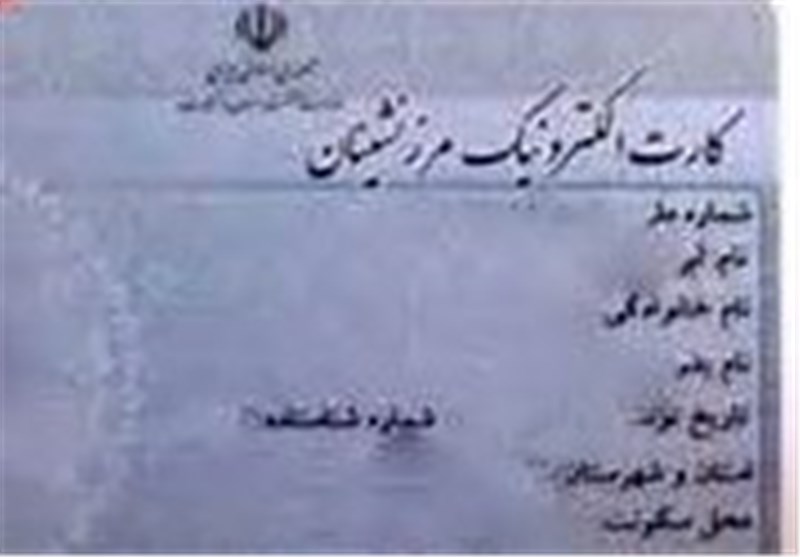 جمهوری اسلامی ایران
کارت الکترونیک مرزنشینان
شماره ملی
نام
نام خانوادگی
نام پدر
تاریخ تولد شماره شناسنامه
استان و شهرستان
محل سکونت